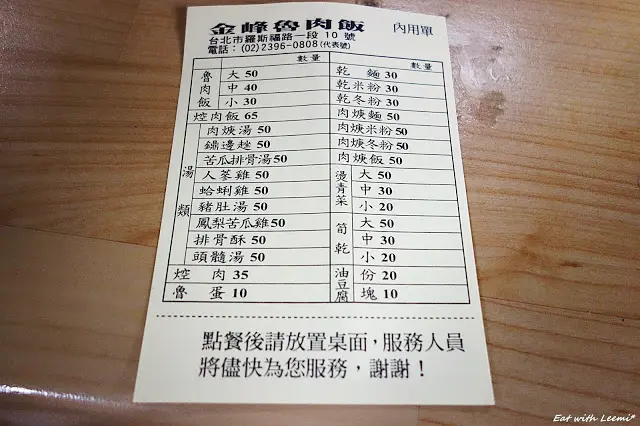 金峰魯肉飯 內用單
台北市羅斯福路一段 10 號
電話：(02)2396-0808(代表號)
數量 數量
魯肉飯 大 50
中 40
小 30
焢肉飯 65
湯類 肉羹湯 50
鍋邊趖 50
苦瓜排骨湯 50
人蔘雞 50
蛤蜊雞 50
豬肚湯 50
鳳梨苦瓜雞 50
排骨酥 50
頭髓湯 50
焢肉 35
魯蛋 10
乾麵 30
乾米粉 30
乾冬粉 30
肉羹麵 50
肉羹米粉 50
肉羹冬粉 50
肉羹飯 50
燙青菜 大 50
中 30
小 20
筍乾 大 50
中 30
小 20
油豆腐 份 20
塊 10
點餐後請放置桌面，服務人員
將儘快為您服務，謝謝！
Eat with Leemi*